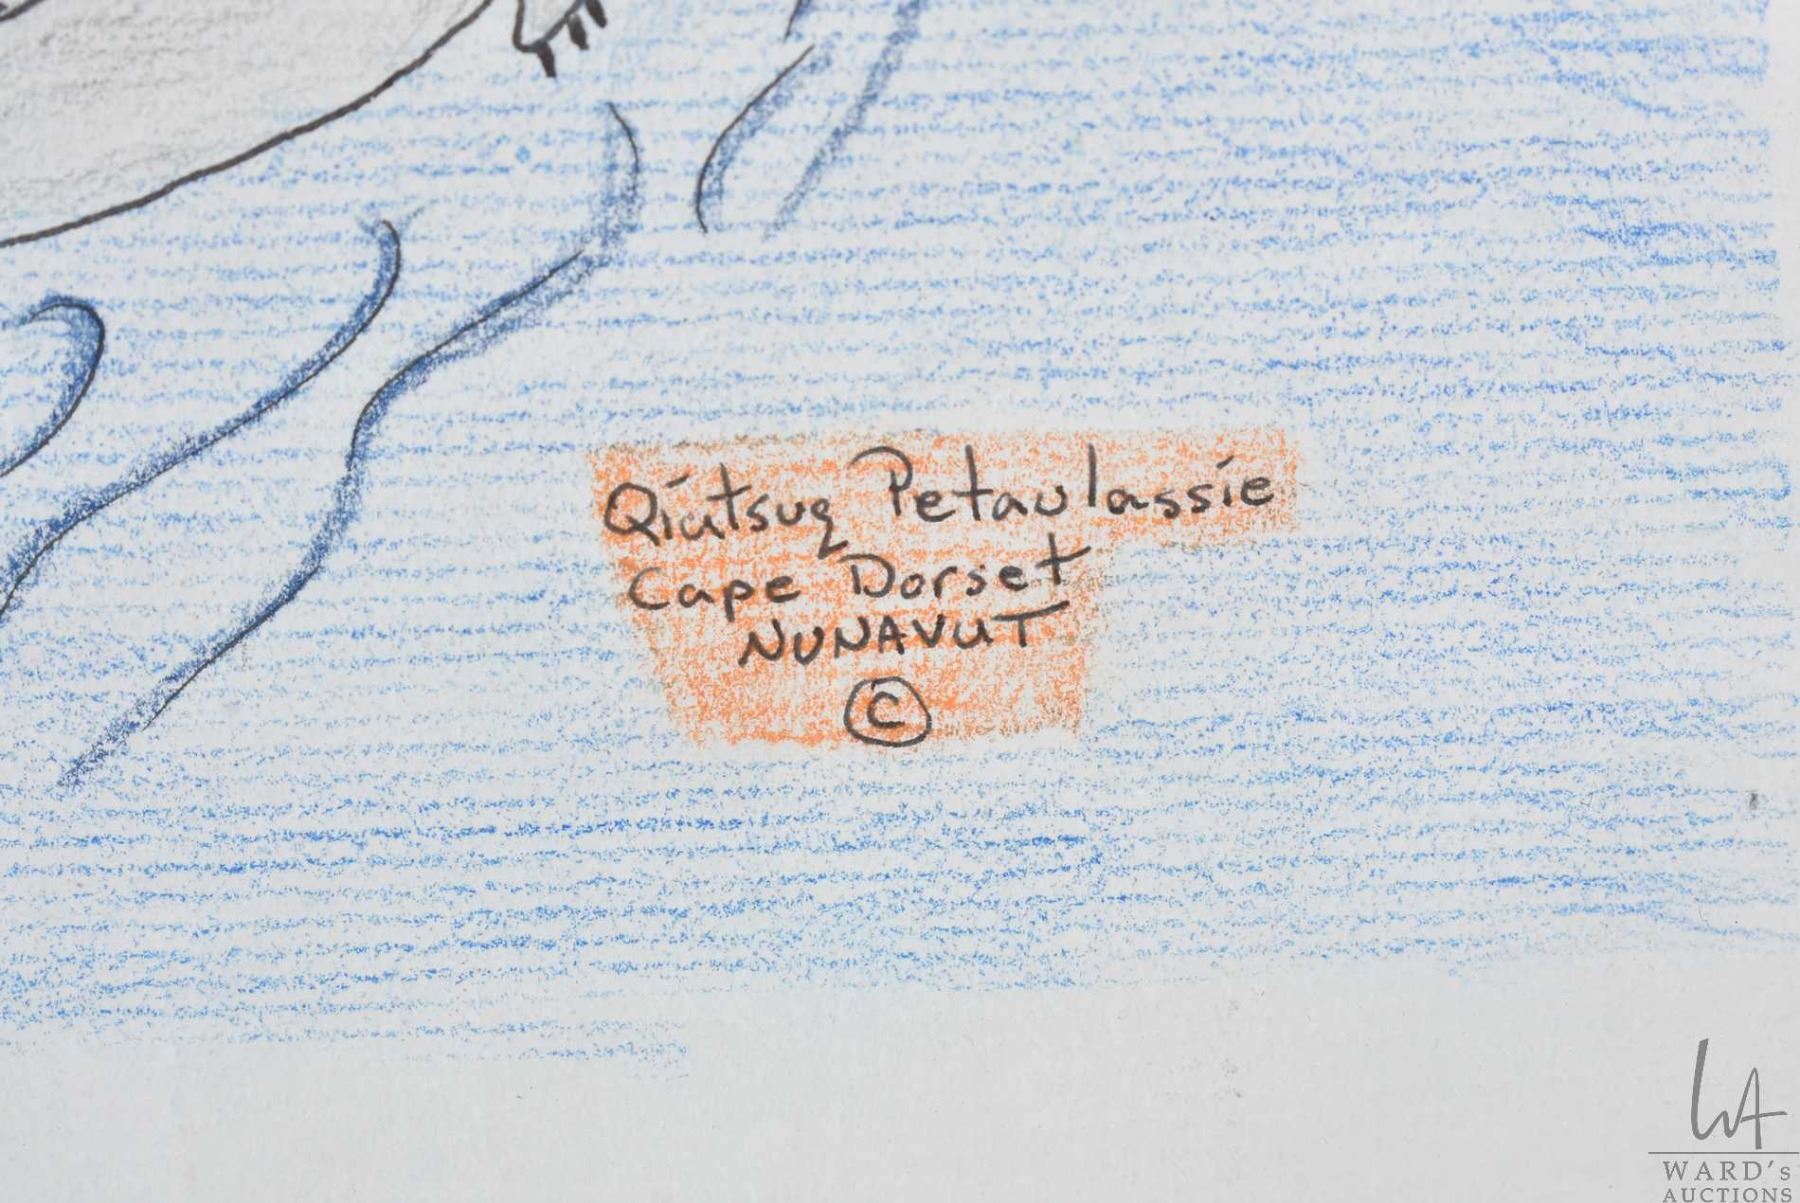 Qiatsuq Petaulassie
Cape Dorset
NUNAVUT
©
WA
WARD's
AUCTIONS